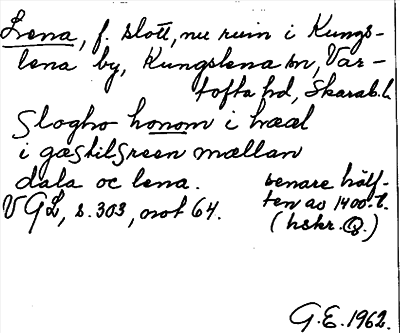 Lena, f. slott, nu ruin i Kungs-
lena by, Kungslena sn, Var-
tofta hd, Skarab.l.
Slogho honom i hæal
i gæstilsreen mællan
dala oc lena.
VGL, s. 303, not 64.
senare hälf-
ten av 1400-t.
(hskr. Q.)
G.E. 1962.